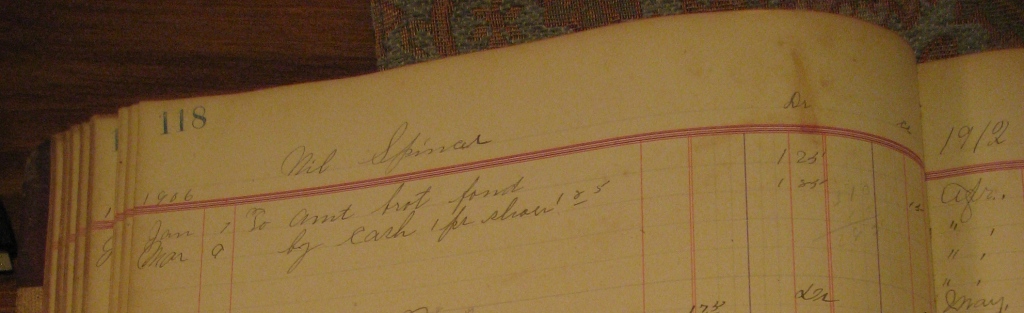 118
Dr
Cr
Wil Spincer
1906
Jan 1 To amt brot forrd 1 25
Mar 9 by cash 1 pr shoes 1 25 1 25
Dr
175
1912
Apr.
" ,
" ,
" May,